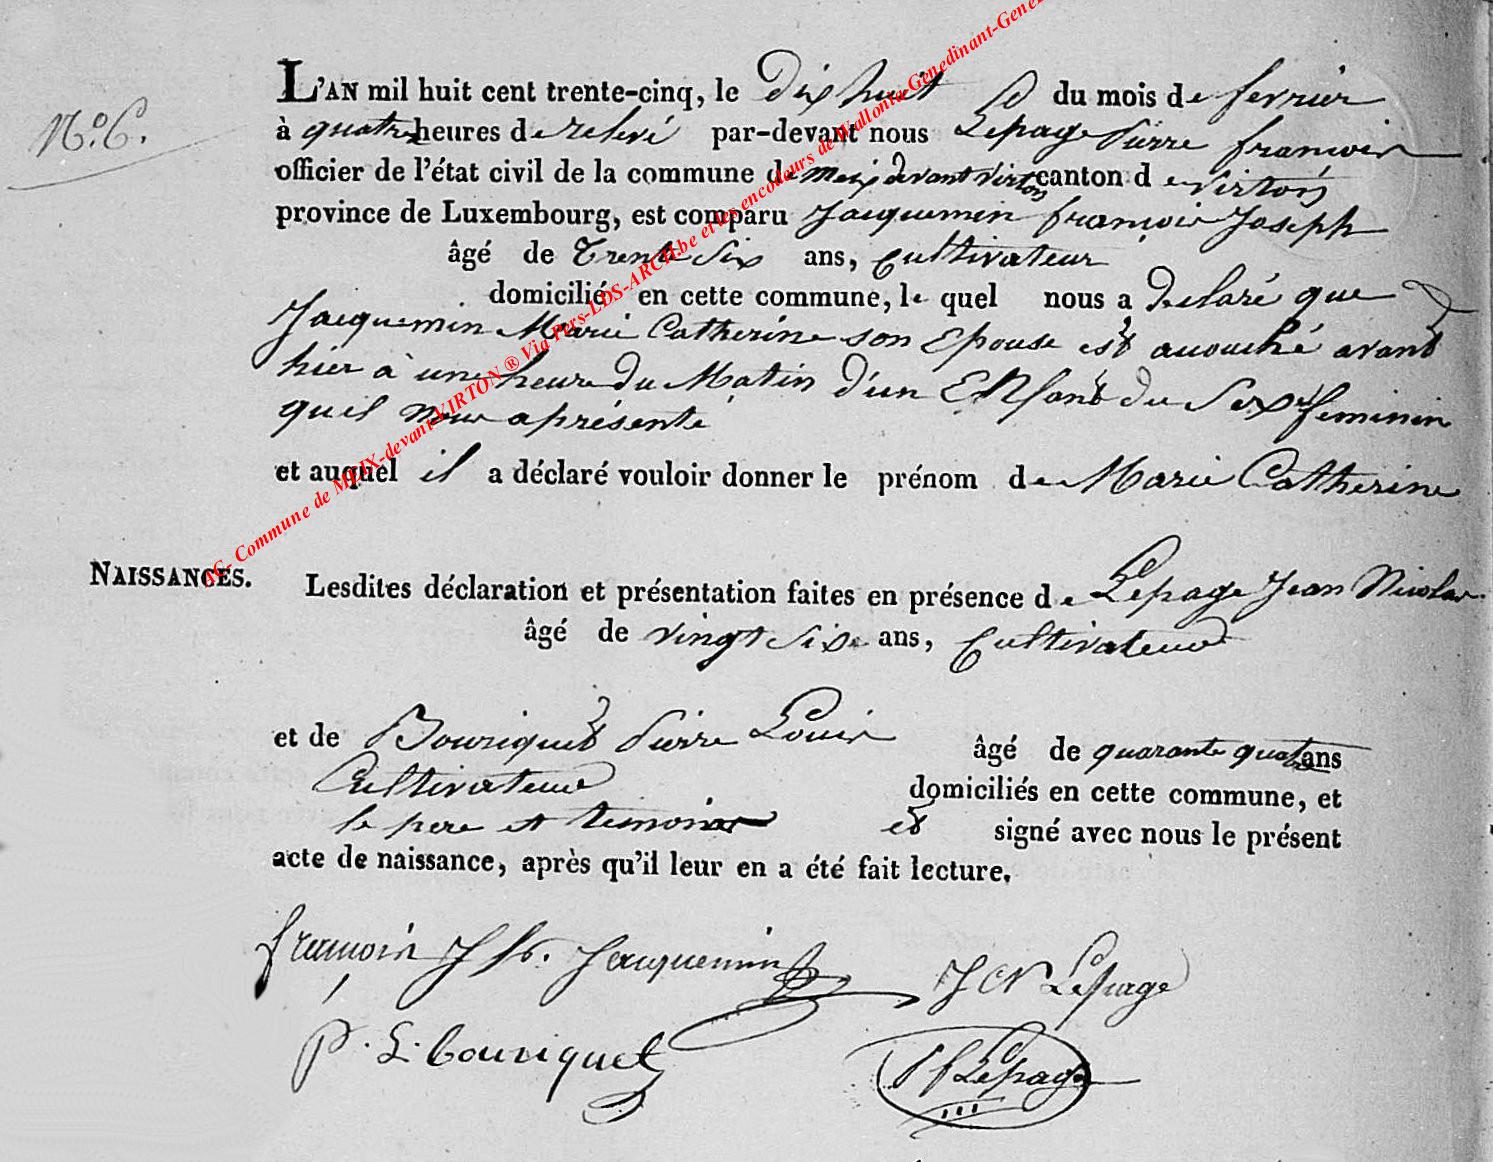 N.º 6.
L'AN mil huit cent trente-cinq, le dix huit du mois de fevrier
à quatre heures de relevé par-devant nous Lepage Pierre françois
officier de l'état civil de la commune de Meix devant Virton canton de Virton
province de Luxembourg, est comparu Jacquemin françois Joseph
âgé de trente six ans, Cultivateur
domicilié en cette commune, le quel nous a declaré que
Jacquemin Marie Catherine son Epouse est acouché avant
hier à une heure du Matin d'un Enfant du Sexe feminin
quil nous a présenté
et auquel il a déclaré vouloir donner le prénom de Marie Catherine
NAISSANCES.
Lesdites déclaration et présentation faites en présence de Lepage Jean Nicolas
âgé de vingt six ans, Cultivateur
et de Bouriquet Pierre Louis âgé de quarante quatre ans
Cultivateur domiciliés en cette commune, et
le pere et temoins et signé avec nous le présent
acte de naissance, après qu'il leur en a été fait lecture.
françois Jph. Jacquemin JN Lepage
P. L. bouriquet PfLepage
AC- Commune de MEIX-devant-VIRTON ® Via Pers-LDS-ARCH.be et les encodeurs de Wallonia Genedinant-Gene